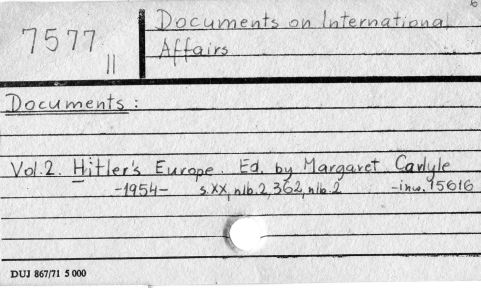 6
7577
II
Documents on International
Affairs
Documents :
Vol.2. Hitler's Europe. Ed. by Margaret Carlyle
-1954- s.XX, nlb.2, 362, nlb.2 -inw. 15616
DUJ 867/71 5 000